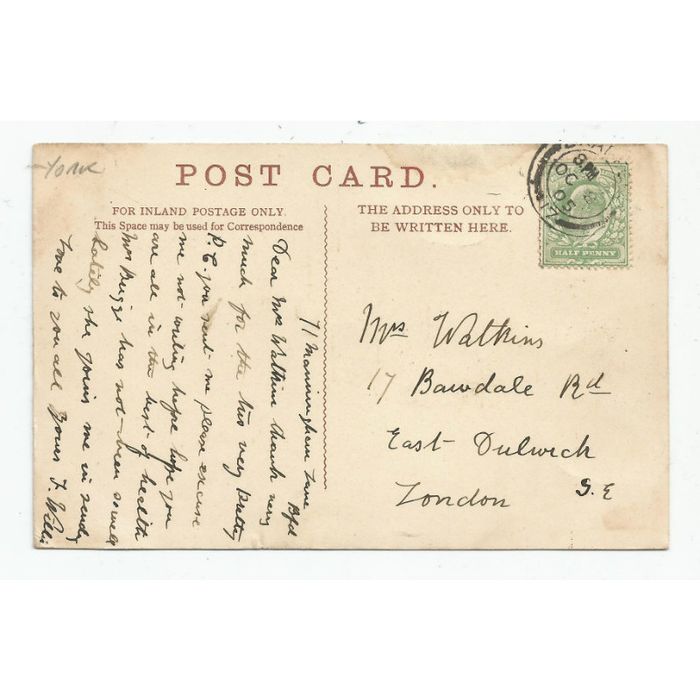 York
POST CARD.
FOR INLAND POSTAGE ONLY.
This Space may be used for Correspondence
THE ADDRESS ONLY TO
BE WRITTEN HERE.
8 PM
OC
05
HALF PENNY
71 Manningham Lane
Bfd
Dear Mrs Watkins thank very
much for the two very pretty
P.C. you sent me please excuse
me not writing before hope you
are all in the best of health
Mrs has not been so well
lately she joins me in sending
love to you all yours J. Willis
Mrs Watkins
17 Bawdale Rd
East Dulwich
London S.E